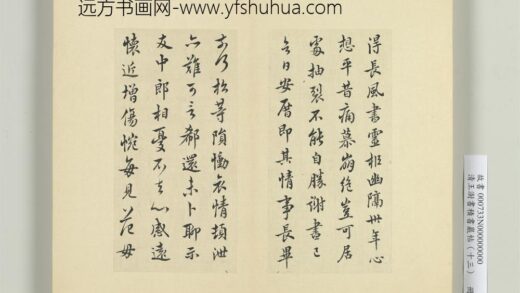 远方书画网-www.yfshuhua.com
得長風書靈柩幽隔卅年心
想平昔痛慕崩絕豈可居
處抽裂不能自勝謝書已
今日安厝即其情事長畢
去行松等隕慟哀情頓泄
亦難可言郗還未卜聊示
友中郎相憂不去心感遠
懷近增傷惋每見范母
故書 000733N00000000
清王澍書積書巖帖（十三）